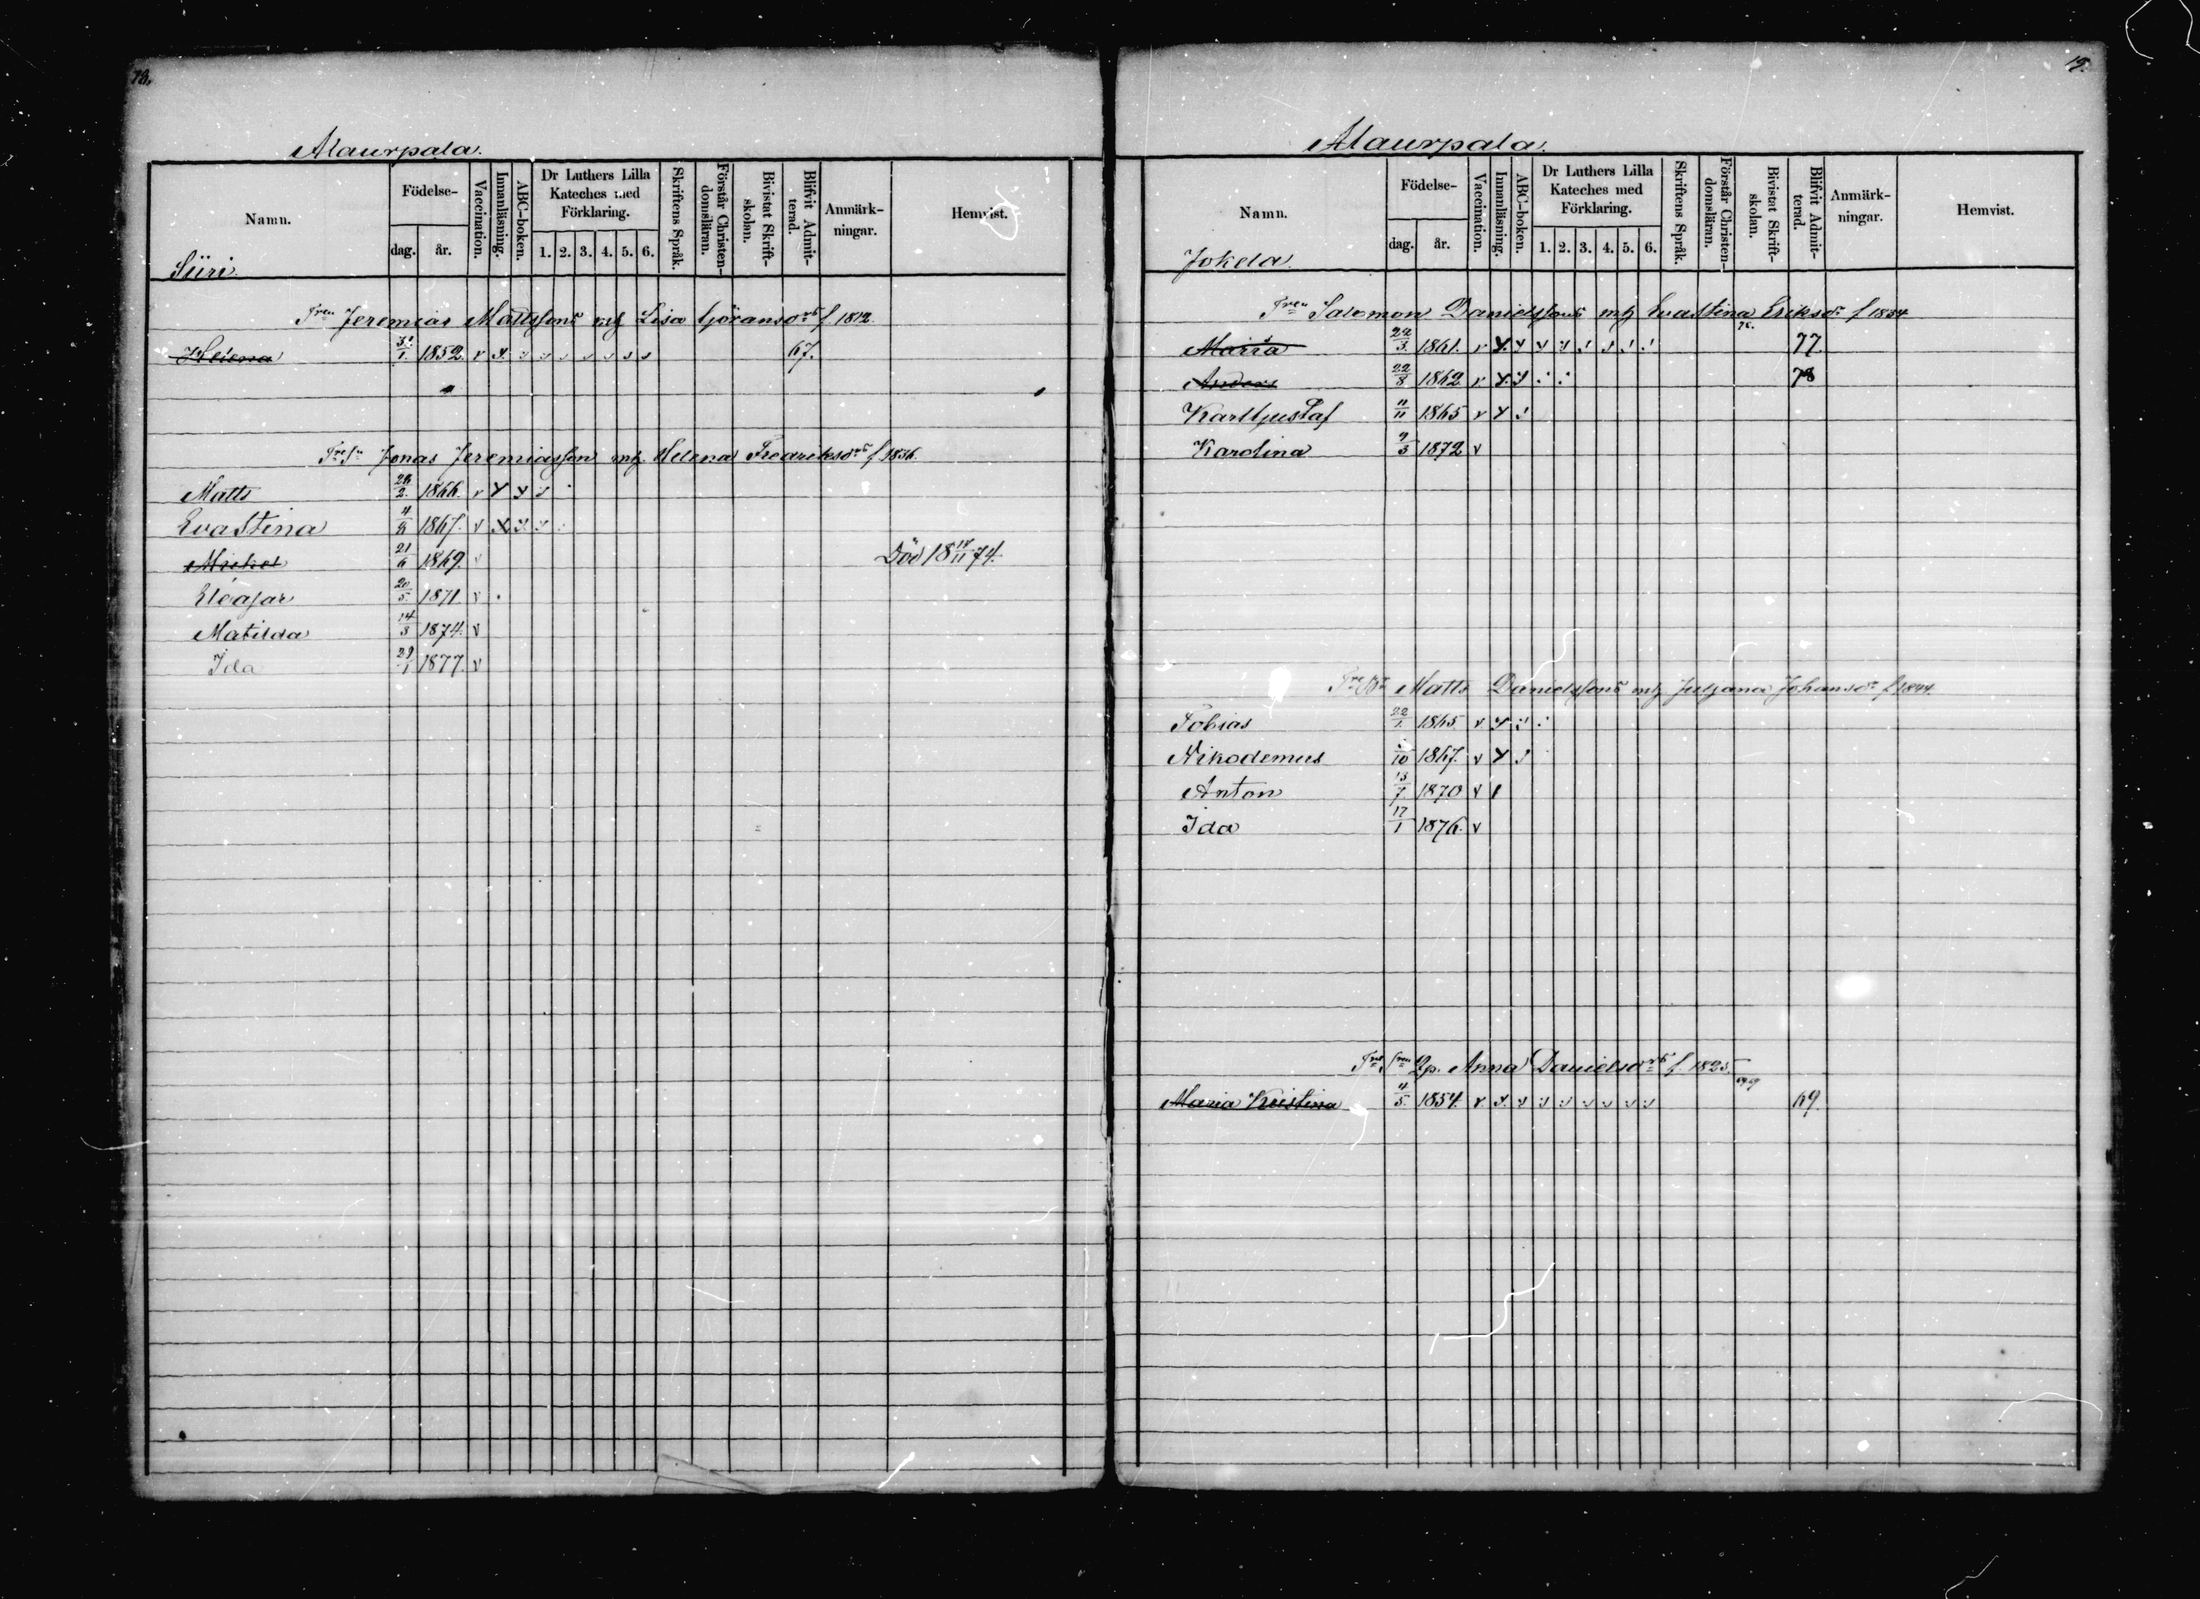 Alaurpala.
Namn. Födelse- dag. år. Vaccination. Innanläsning. ABC-boken. Dr Luthers Lilla Kateches med Förklaring. 1. 2. 3. 4. 5. 6. Skriftens Språk. Förstår Christendomsläran. Bivistat Skriftskolan. Blifvit Admitterad. Anmärkningar. Hemvist.
Siiri.
Jeremias Mattssons mh Lisa Göransdr f 1812.
Helena 1852. v 67.
Jonas Jeremiasson mh Helena Fredriksdr f 1836.
Matts 1866. v
Eva Stina 1867. v
Mickel 21/6 1869. Död 18 17/11 74.
Eleasar 20/5 1871. v
Matilda 14/3 1874. v
Ida 29/1 1877. v
19.
Alaurpala.
Namn. Födelse- dag. år. Vaccination. Innanläsning. ABC-boken. Dr Luthers Lilla Kateches med Förklaring. 1. 2. 3. 4. 5. 6. Skriftens Språk. Förstår Christendomsläran. Bivistat Skriftskolan. Blifvit Admitterad. Anmärkningar. Hemvist.
Jokela.
Salomon Danielssons mh Eva Stina Eriksdr f 1834
Maria 22/3 1861. v 77.
Anders 22/8 1862 v 78
Karl Gustaf 11/11 1865 v
Karolina 9/3 1872 v
Matts Danielssons mh Juljana Johansdr f 1844.
Tobias 22/1 1865. v
Nikodemus 1867. v
Anton 13/7 1870 v
Ida 17/1 1876. v
Anna Danielsdr f. 1825.
Maria Kristina 4/5 1854. v 69.